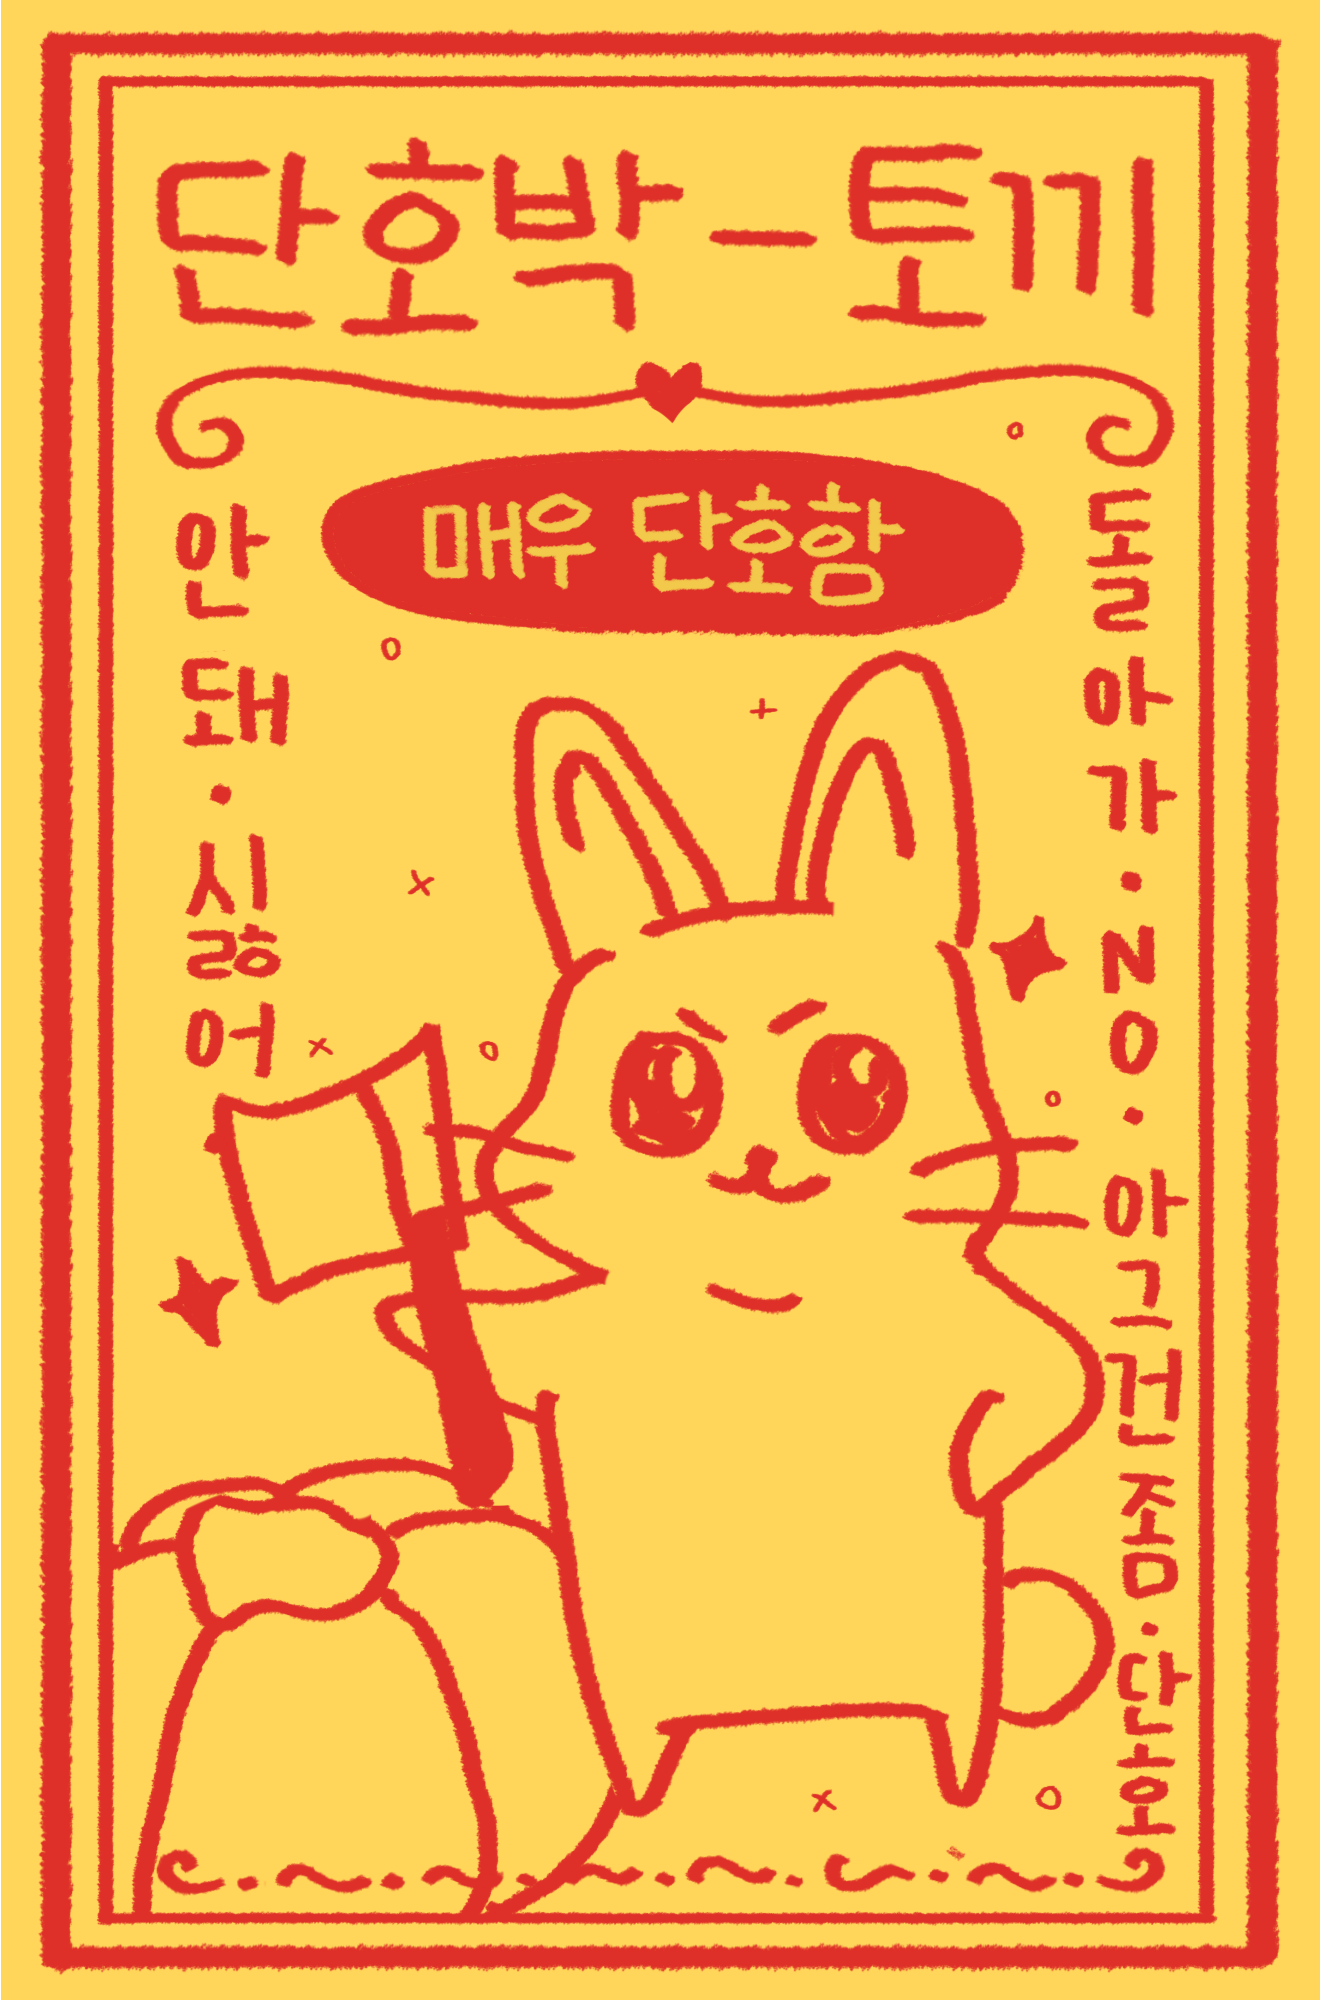 단호박-토끼
매우 단호함
안돼·싫어
돌아가·NO·아그건좀·단호